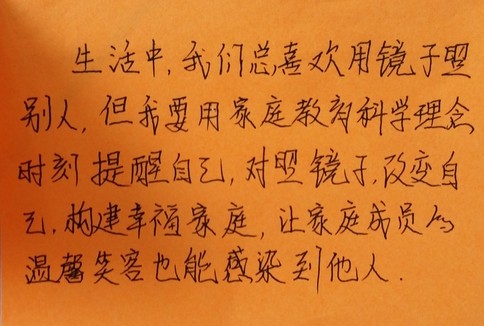 生活中,我们总喜欢用镜子照
别人,但我要用家庭教育科学理念
时刻提醒自己,对照镜子,改变自
己,构建幸福家庭,让家庭成员的
温馨笑容也能感染到他人.